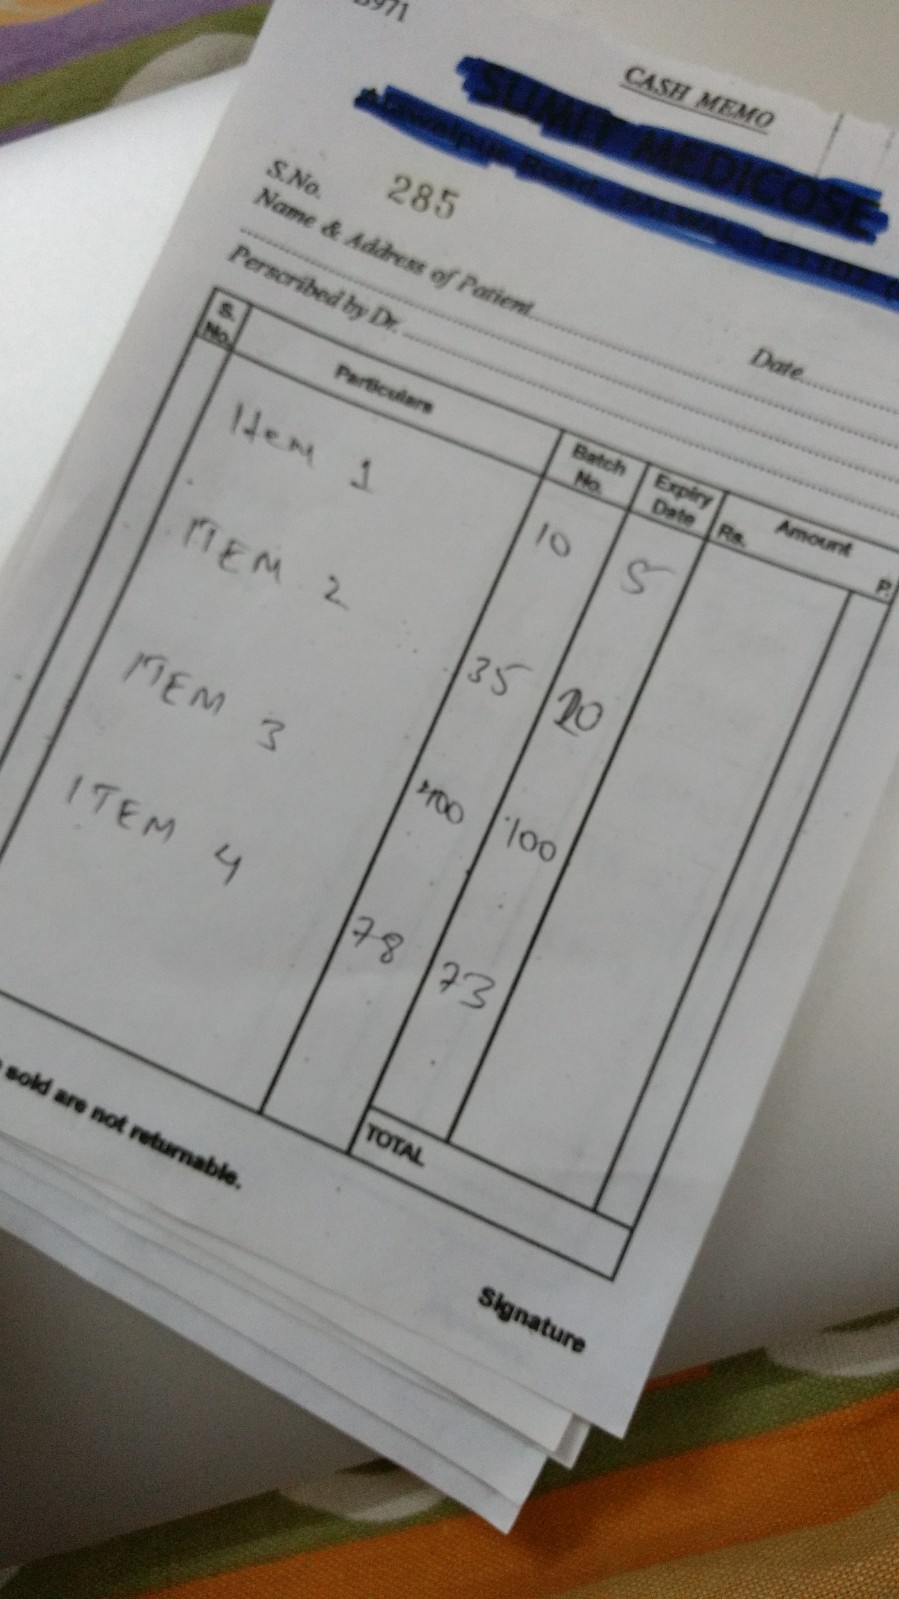 B971
CASH MEMO
SUMIT MEDICOSE
S.No. 285
Name & Address of Patient
Date
Perscribed by Dr.
S. No. Particulars Batch No. Expiry Date Amount Rs. P.
Item 1 10 5
ITEM 2 35 20
ITEM 3 400 100
ITEM 4 78 73
TOTAL
sold are not returnable.
Signature